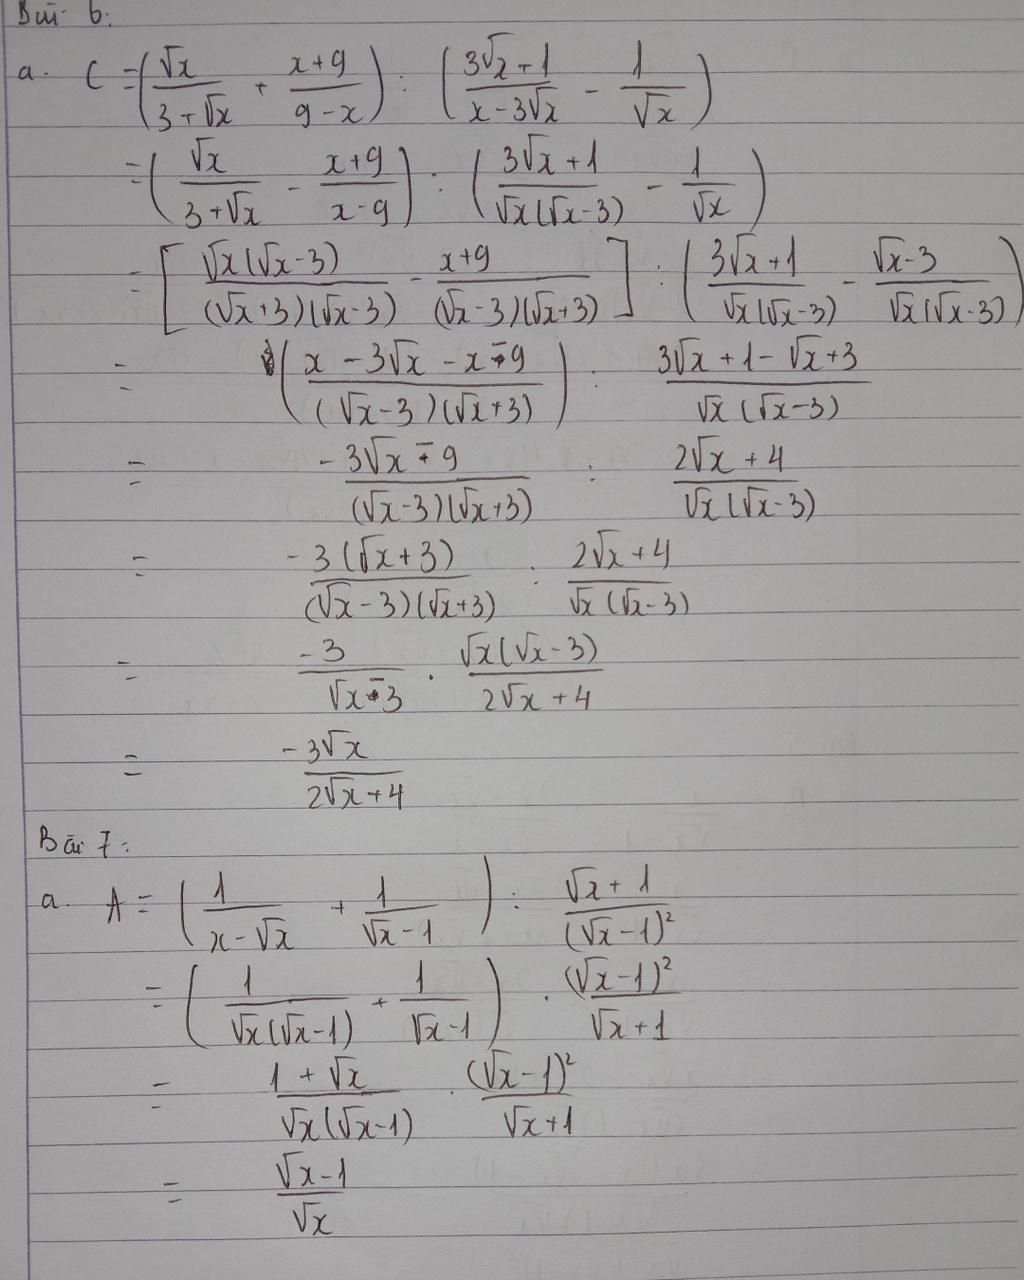 Bài 6:
a. C = (√x/(3+√x) + (x+9)/(9-x)) : ((3√x+1)/(x-3√x) - 1/√x)
= (√x/(3+√x) - (x+9)/(x-9)) : ((3√x+1)/(√x(√x-3)) - 1/√x)
= [√x(√x-3)/((√x+3)(√x-3)) - (x+9)/((√x-3)(√x+3))] : ((3√x+1)/(√x(√x-3)) - (√x-3)/(√x(√x-3)))
= ((x-3√x-x-9)/((√x-3)(√x+3))) : (3√x+1-√x+3)/(√x(√x-3))
= (-3√x-9)/((√x-3)(√x+3)) : (2√x+4)/(√x(√x-3))
= -3(√x+3)/((√x-3)(√x+3)) : (2√x+4)/(√x(√x-3))
= -3/(√x-3) . √x(√x-3)/(2√x+4)
= -3√x/(2√x+4)
Bài 7:
a. A = (1/(x-√x) + 1/(√x-1)) : (√x+1)/(√x-1)²
= (1/(√x(√x-1)) + 1/(√x-1)) . (√x-1)²/(√x+1)
= (1+√x)/(√x(√x-1)) . (√x-1)²/(√x+1)
= (√x-1)/√x